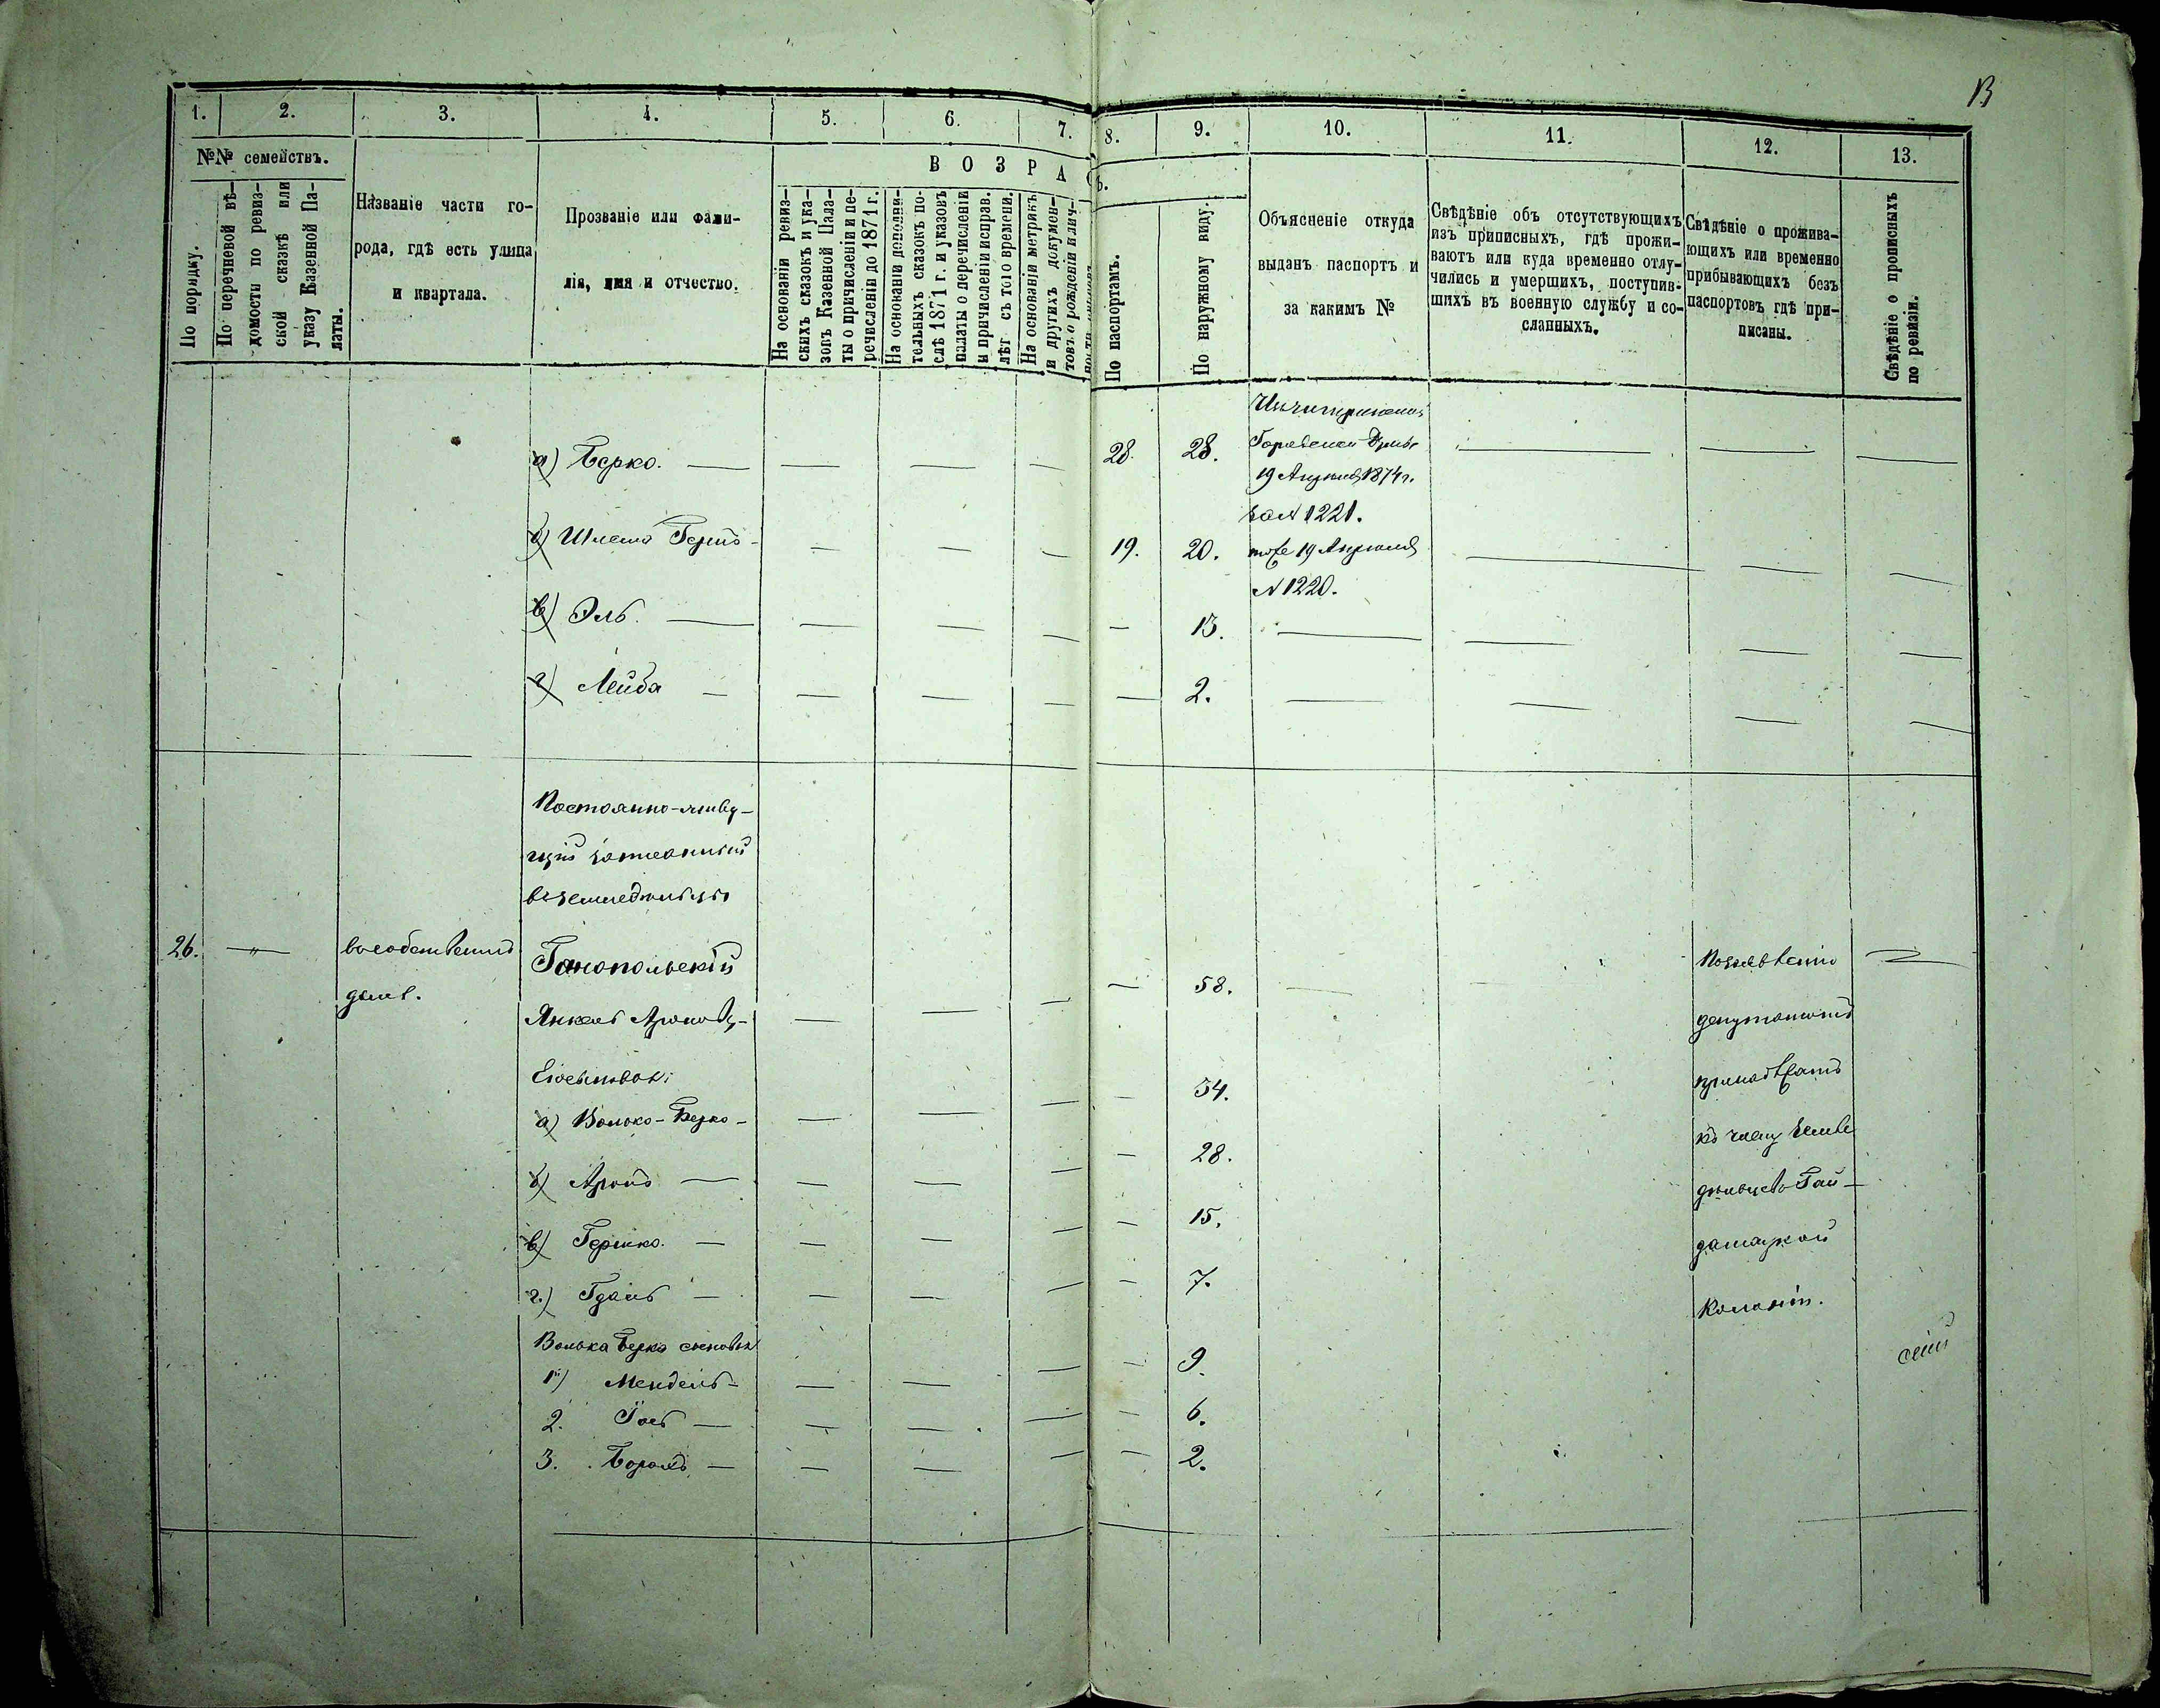 13
1. 2. 3. 4. 5. 6. 7. 8. 9. 10. 11. 12. 13.
№№ семействъ.
По порядку.
По перечневой вѣ-
домости по ревиз-
ской сказкѣ или
указу Казенной Па-
латы.
Названіе части го-
рода, гдѣ есть улица
и квартала.
Прозваніе или фами-
лія, имя и отчество.
ВОЗРАСТЪ.
На основаніи ревиз-
скихъ сказокъ и ука-
зовъ Казенной Пала-
ты о причисленіи и пе-
речисленіи до 1871 г.
На основаніи дополни-
тельныхъ сказокъ по-
слѣ 1871 г. и указовъ
палаты о перечисленіи
и причисленіи исправ.
лѣт съ того времени.
На основаніи метрикъ
и другихъ докумен-
товъ о рожденіи и лич-
По паспортамъ.
По наружному виду.
Объясненіе откуда
выданъ паспортъ и
за какимъ №
Свѣдѣніе объ отсутствующихъ
изъ приписныхъ, гдѣ прожи-
ваютъ или куда временно отлу-
чились и умершихъ, поступив-
шихъ въ военную службу и со-
сланныхъ.
Свѣдѣніе о прожива-
ющихъ или временно
прибывающихъ безъ
паспортовъ гдѣ при-
писаны.
Свѣдѣніе о прописныхъ
по ревизіи.
а) Берко. — — — — 28. 28. — — —
Городской
19 Апреля 1874 г.
за № 1221.
б) Шлема — — — 19. 20. тоже 19 Апреля — — —
№ 1220.
в) Эль. — — — — — 13. — — — —
г) Лейба — — — — — 2. — — — —
Постоянно-живу-
щій
26. — въ собственномъ Ганопольскій
домѣ.
Янкель — — — — 58. —
Его сыновья:
а) Волько-Берко — — — — 34.
б) Аронъ — — — — — 28.
в) Гершко. — — — — — 15.
г.) — — — — — 7.
Волька Берка сыновья
1) Мендель — — — — — 9.
2. Іось — — — — — 6.
3. — — — — — 2.
По заявленію
депутатовъ
къ
колоніи.